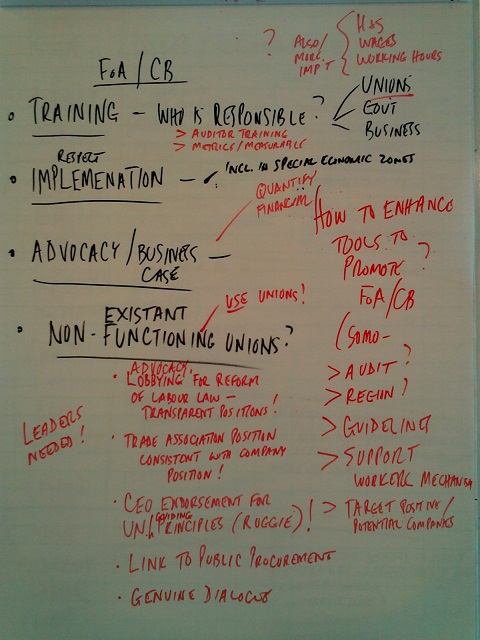 ?
ALSO/
MORE
IMP'T
H&S
WAGES
WORKING HOURS
FoA/CB
• TRAINING - WHO IS RESPONSIBLE?
UNIONS
GOVT
BUSINESS
> AUDITOR TRAINING
> METRICS/MEASURABLE
RESPECT
• IMPLEMENATION - INCL. IN SPECIAL ECONOMIC ZONES
QUANTIFY
FINANCIAL
• ADVOCACY/BUSINESS
CASE -
USE UNIONS!
EXISTANT
• NON-FUNCTIONING UNIONS?
ADVOCACY,
• LOBBYING FOR REFORM
OF LABOUR LAW -
TRANSPARENT POSITIONS!
LEADERS
NEEDED!
• TRADE ASSOCIATION POSITION
CONSISTENT WITH COMPANY
POSITION!
• CEO ENDORSEMENT FOR
GUIDING
UN PRINCIPLES (RUGGIE)!
• LINK TO PUBLIC PROCUREMENT
• GENUINE DIALOGUE
HOW TO ENHANCE
TOOLS TO
PROMOTE ?
FoA/CB
(SOMO-
> AUDIT?
> REGION?
> GUIDELINES
> SUPPORT
WORKERS MECHANISM
> TARGET POSITIVE/
POTENTIAL COMPANIES